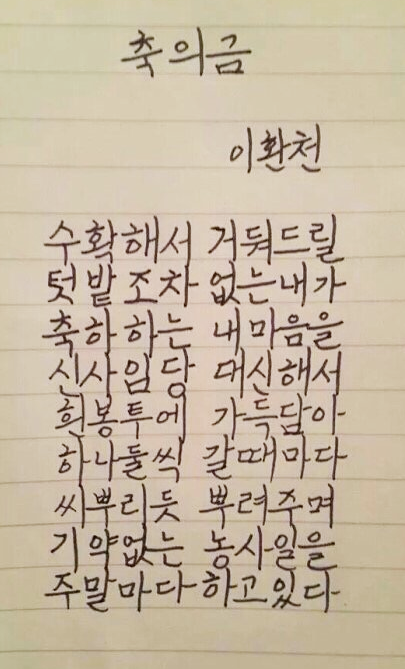 축의금
이환천
수확해서 거둬드릴
텃밭조차 없는내가
축하하는 내마음을
신사임당 대신해서
흰봉투에 가득담아
하나둘씩 갈때마다
씨뿌리듯 뿌려주며
기약없는 농사일을
주말마다하고있다